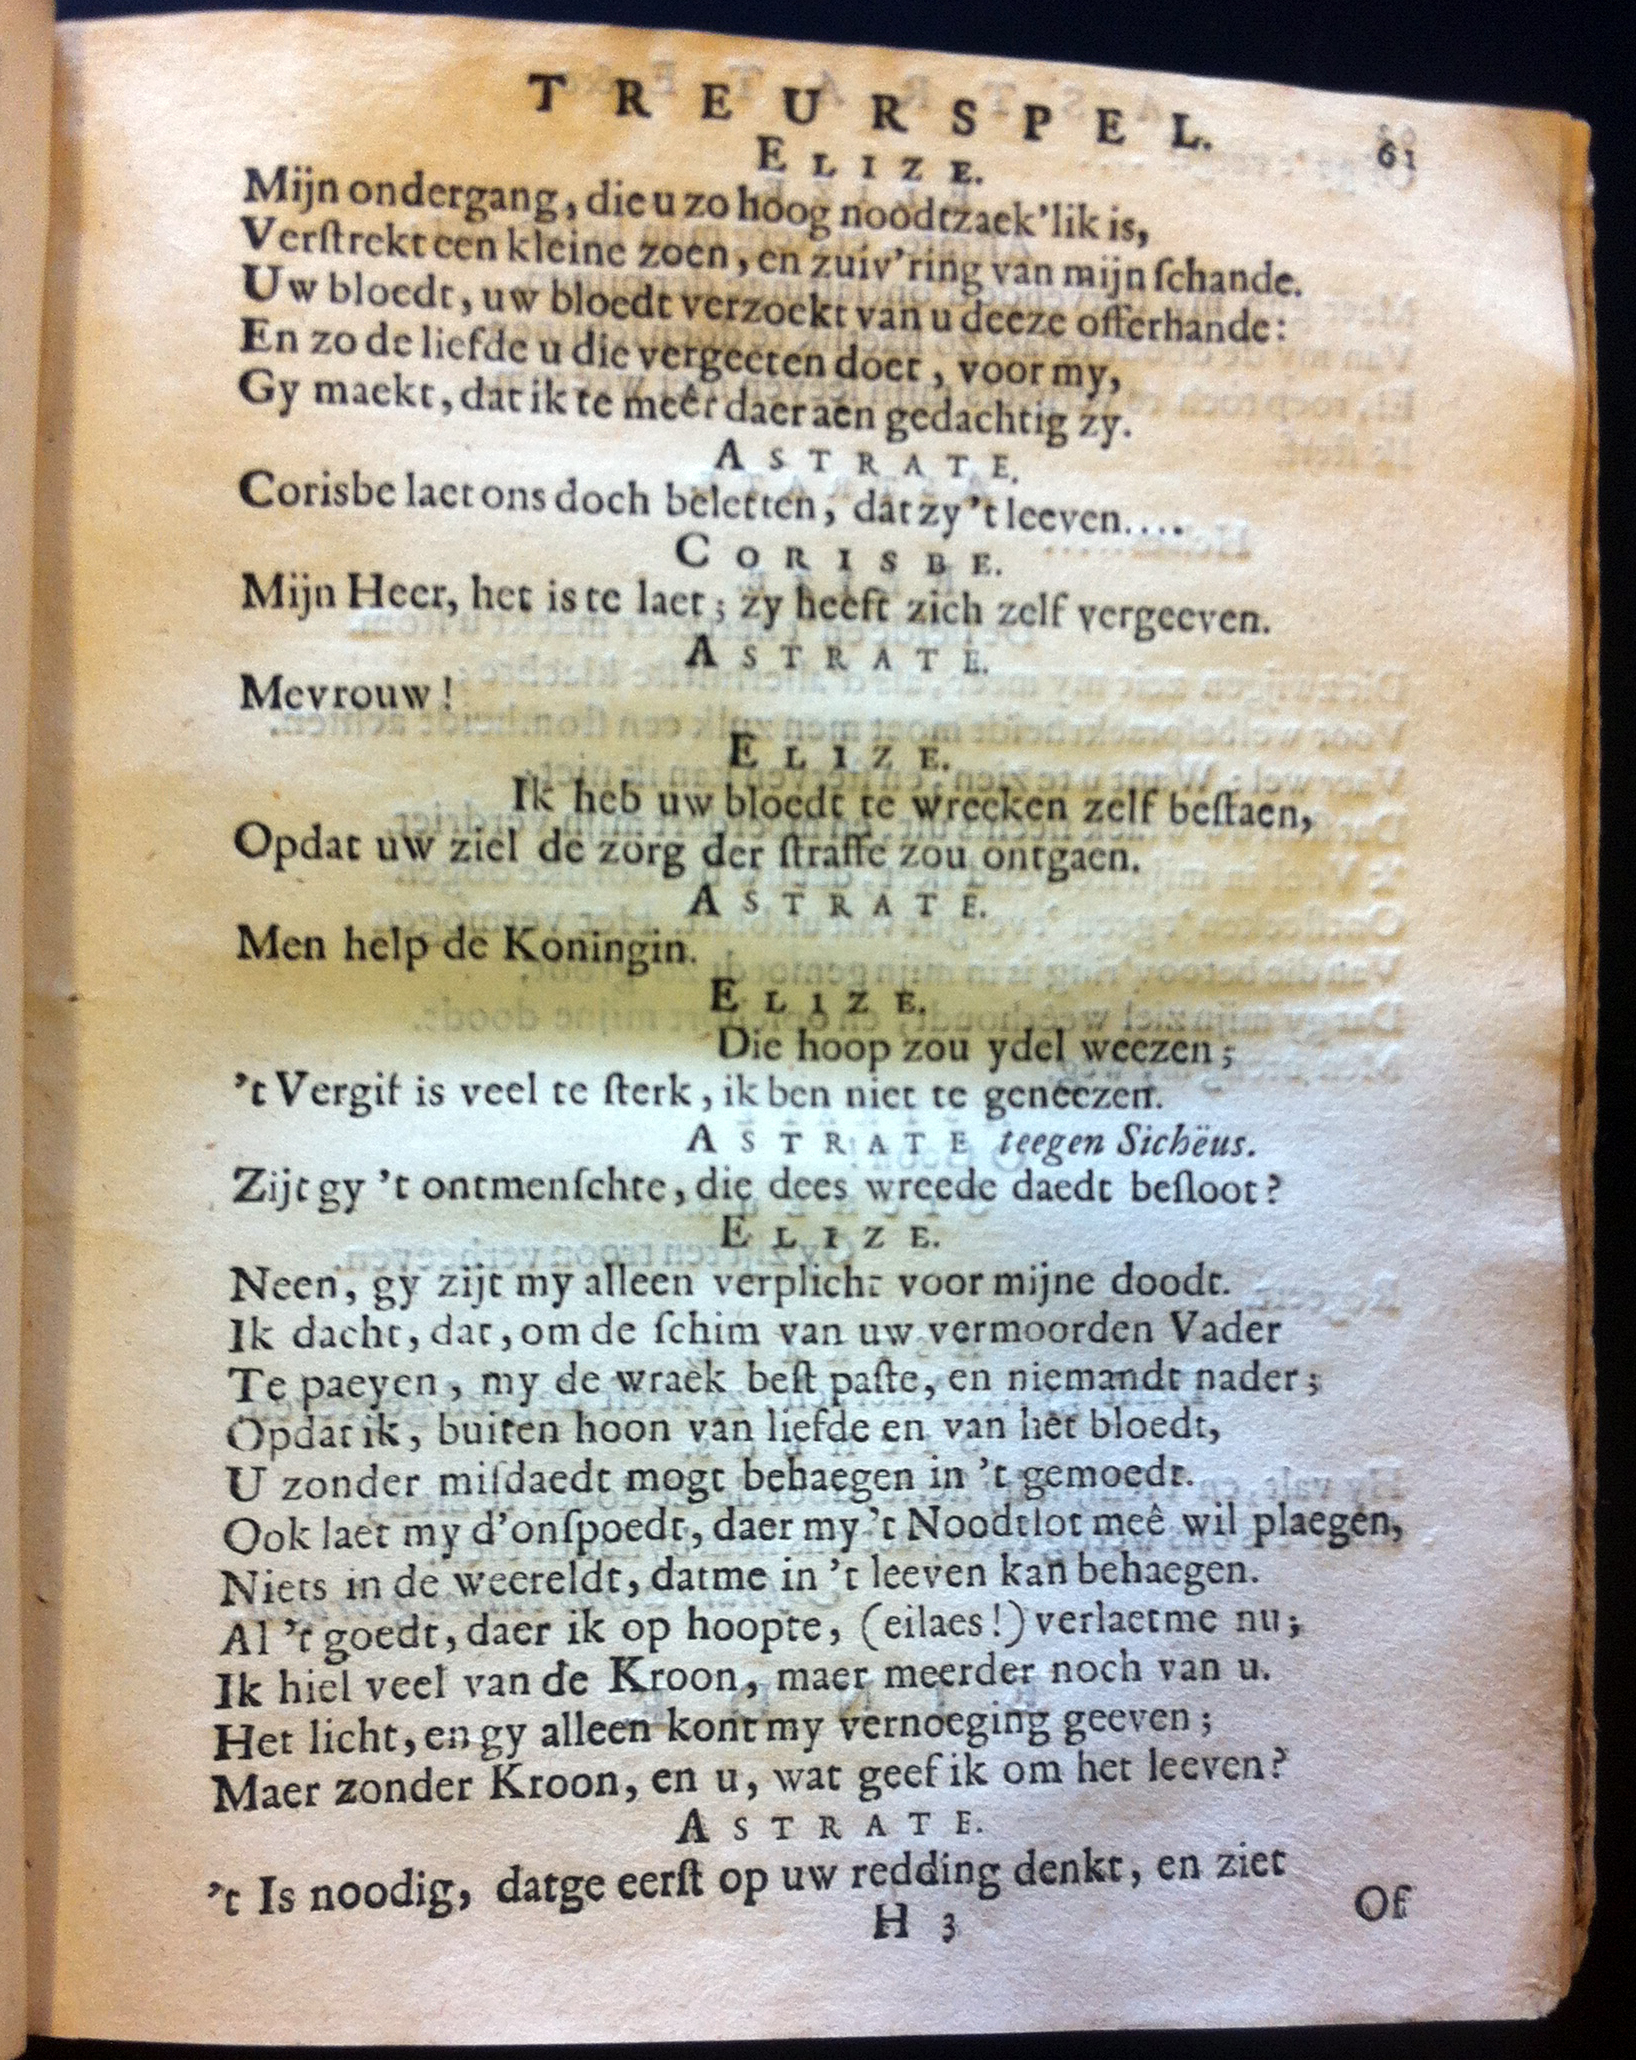 TREURSPEL. 61
ELIZE.
Mijn ondergang, die u zo hoog noodtzaek'lik is,
Verſtrekt een kleine zoen, en zuiv'ring van mijn ſchande.
Uw bloedt, uw bloedt verzoekt van u deeze offerhande:
En zo de liefde u die vergeeten doet, voor my,
Gy maekt, dat ik te meêr daer aen gedachtig zy.
ASTRATE.
Corisbe laet ons doch beletten, dat zy 't leeven....
CORISBE.
Mijn Heer, het is te laet; zy heeft zich zelf vergeeven.
ASTRATE.
Mevrouw!
ELIZE.
Ik heb uw bloedt te wreeken zelf beſtaen,
Opdat uw ziel de zorg der ſtraffe zou ontgaen.
ASTRATE.
Men help de Koningin.
ELIZE.
Die hoop zou ydel weezen;
't Vergif is veel te ſterk, ik ben niet te geneezen.
ASTRATE teegen Sichëus.
Zijt gy 't ontmenſchte, die dees wreede daedt beſloot?
ELIZE.
Neen, gy zijt my alleen verplicht voor mijne doodt.
Ik dacht, dat, om de ſchim van uw vermoorden Vader
Te paeyen, my de wraek beſt paſte, en niemandt nader;
Opdat ik, buiten hoon van liefde en van het bloedt,
U zonder miſdaedt mogt behaegen in 't gemoedt.
Ook laet my d'onſpoedt, daer my 't Noodtlot meê wil plaegen,
Niets in de weereldt, datme in 't leeven kan behaegen.
Al 't goedt, daer ik op hoopte, (eilaes!) verlaetme nu;
Ik hiel veel van de Kroon, maer meerder noch van u.
Het licht, en gy alleen kont my vernoeging geeven;
Maer zonder Kroon, en u, wat geef ik om het leeven?
ASTRATE.
't Is noodig, datge eerſt op uw redding denkt, en ziet
H 3 Of